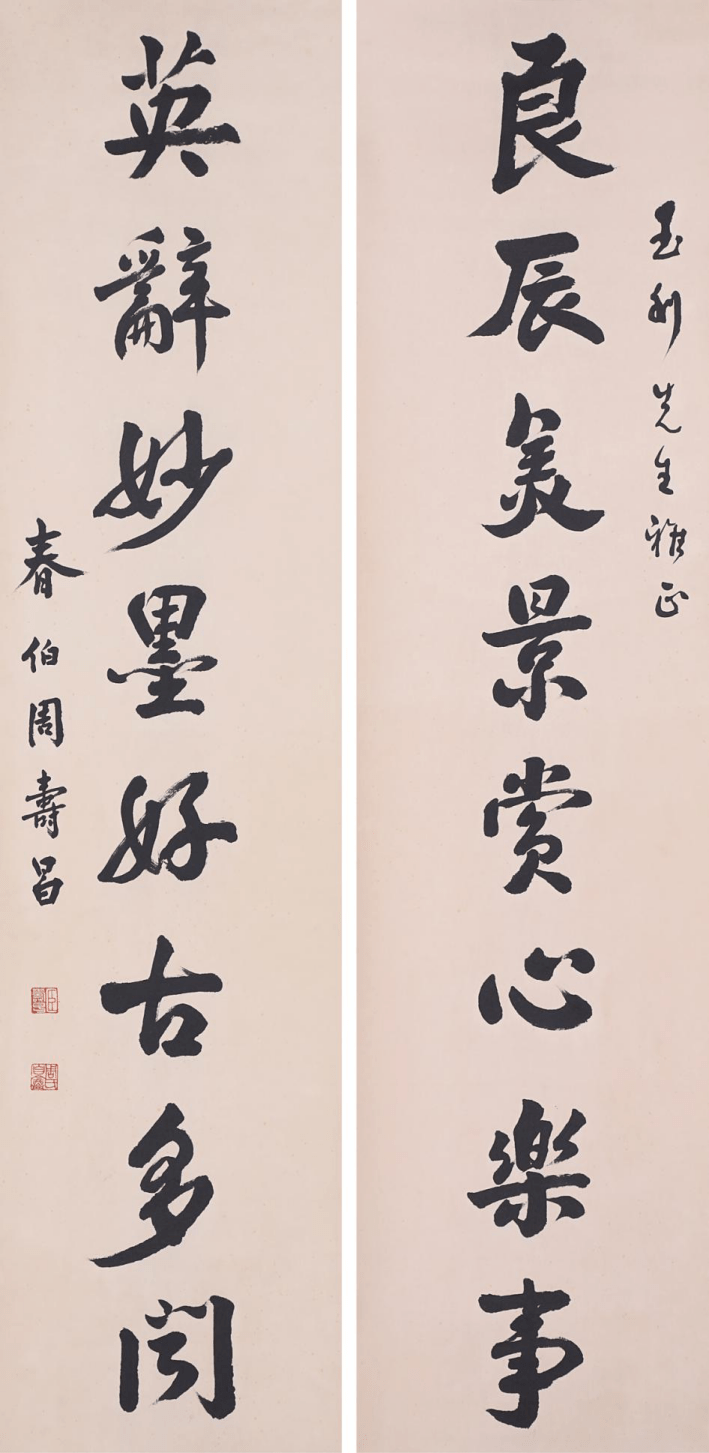 玉 先生雅正
良辰美景賞心樂事
英辭妙墨好古多聞
春伯周壽昌